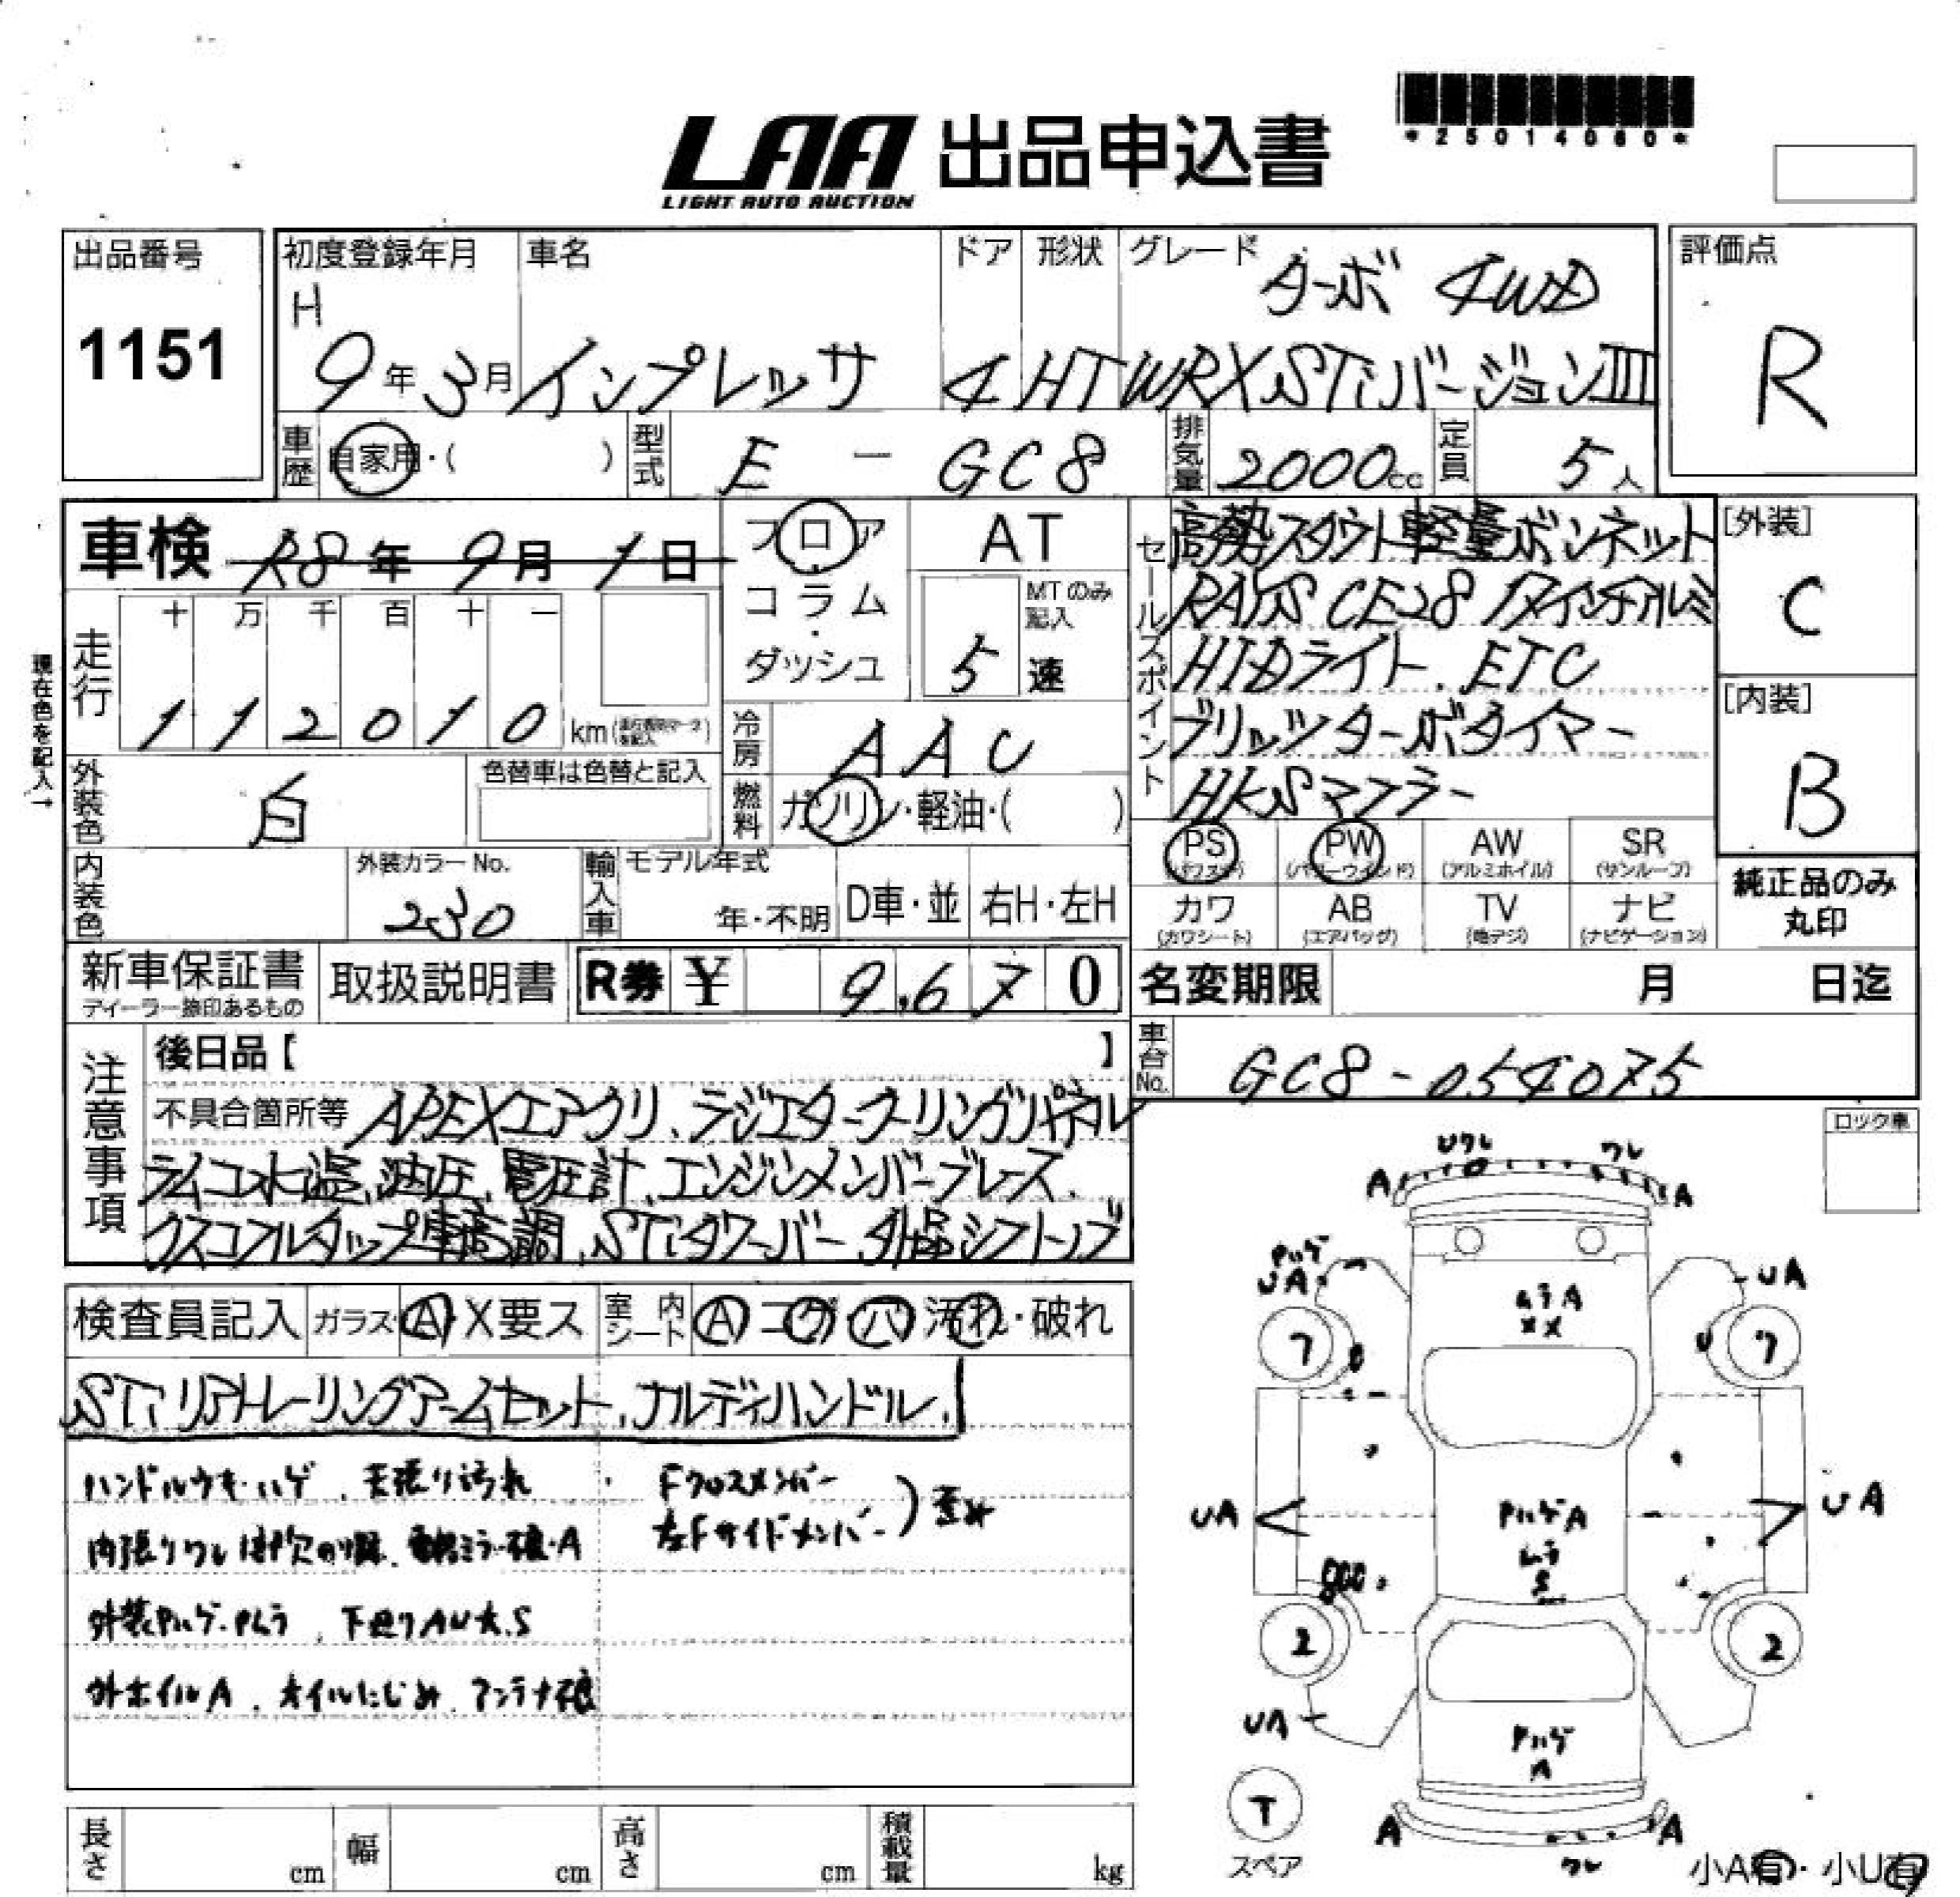 LAA 出品申込書
LIGHT AUTO AUCTION
*25014060*
出品番号
1151
初度登録年月
H
9年3月
車名
インプレッサ
ドア
4
形状
HT
グレード
ターボ 4WD
WRX STi バージョンIII
評価点
R
車歴
自家用・( )
型式
E - GC8
排気量
2000cc
定員
5人
車検 R8年 9月 1日
フロア
コラム
・
ダッシュ
AT
MTのみ
記入
5 速
セールスポイント
スクウト軽量ボンネット
RAYS CE28 17インチアルミ
HIDライト、ETC
ブリッツターボタイマー
HKSマフラー
[外装]
C
[内装]
B
純正品のみ
丸印
現在色を記入→
走行
十 万 千 百 十 一
1 1 2 0 1 0 km
冷房
AAC
燃料
ガソリン・軽油・( )
外装色
白
色替車は色替と記入
内装色
外装カラーNo.
230
輸入車
モデル年式
年・不明
D車・並
右H・左H
PS
(パワステ)
PW
(パワーウインド)
AW
(アルミホイル)
SR
(サンルーフ)
カワ
(カワシート)
AB
(エアバッグ)
TV
(地デジ)
ナビ
(ナビゲーション)
新車保証書
ディーラー捺印あるもの
取扱説明書
R券 ¥ 9,670
名変期限 月 日迄
車台No.
GC8-054075
注意事項
後日品【 】
不具合箇所等 APEXエアクリ、ラジエタークーリングパネル
ラムコ水温、油圧、電圧計、エンジンメンバーブレース、
クスコフルタップ車高調、STiタワーバー、外品シフトノブ
ロック車
検査員記入
ガラス・A X要ス
室内シート
A コゲ・穴 汚れ・破れ
STiリアトレーリングアームセット、ナルディハンドル、
ハンドルウキ・ハゲ、天張り汚れ
・Fクロスメンバー
左Fサイドメンバー)歪み
内張りワレ
外装Pハゲ・Pムラ、下廻りAU大、S
外ホイルA、オイルにじみ、アンテナ破
Uワレ ワレ
A A
Pハゲ
UA
UA
ムラA
××
7 7
UA UA
PハゲA
ムラ
S
2 2
UA
Pハゲ
A
T
スペア
A A
ワレ
小A有・小U有
長さ cm
幅 cm
高さ cm
積載量 kg